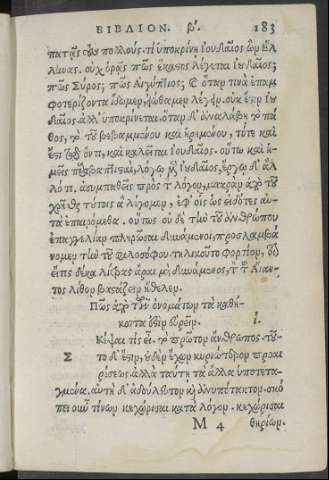 ΒΙΒΛΙΟΝ. β'. 183
πατᾷς τοὺς πολλούς. τί ὑποκρίνῃ ἰουδαῖος ὢν ἕλ
ληνας. οὐχ ὁρᾷς πῶς ἕκαστος λέγεται ἰουδαῖος;
πῶς Σύρος; πῶς Αἰγύπτιος; καὶ ὅταν τινὰ ἐπαμ
φοτερίζοντα ἴδωμεν, εἰώθαμεν λέγειν. οὐκ ἔστιν ἰου
δαῖος ἀλλ' ὑποκρίνεται. ὅταν δ' ἀναλάβῃ τὸ πά
θος, τὸ τοῦ βεβαμμένου καὶ ᾑρημένου, τότε καὶ
ἔστι τῷ ὄντι, καὶ καλεῖται ἰουδαῖος. οὕτω καὶ ἡ-
μεῖς παραβαπτισταί, λόγῳ μὲν ἰουδαῖοι, ἔργῳ δ' ἄλ
λό τι, ἀσυμπαθεῖς πρὸς τὸν λόγον, μακρὰν ἀπὸ τοῦ
χρῆσθαι τούτοις ἃ λέγομεν, ἐφ' οἷς ὡς εἰδότες αὐ-
τὰ ἐπαιρόμεθα. οὕτως οὐδὲ τὴν τοῦ ἀνθρώπου
ἐπαγγελίαν πληρῶσαι δυνάμενοι, προσλαμβά
νομεν τὴν τοῦ φιλοσόφου τηλικοῦτο φορτίον, οἷον
εἴ τις δέκα λίτρας ἆραι μὴ δυνάμενος, τὸν τοῦ Αἴαν-
τος λίθον βαστάζειν ἤθελεν.
Πῶς ἀπὸ τῶν ὀνομάτων τὰ καθή-
κοντα ἔστιν εὑρεῖν. ι.
Σ Κέψαι τίς εἶ. τὸ πρῶτον ἄνθρωπος. τοῦ-
το δ' ἔστιν, οὐδὲν ἔχων κυριώτερον προαι
ρέσεως ἀλλὰ ταύτῃ τὰ ἄλλα ὑποτετα-
γμένα. αὐτὴ δ' ἀδούλευτον καὶ ἀνυπότακτον. σκό
πει οὖν τίνων κεχώρισαι κατὰ λόγον. κεχώρισαι
Μ 4 θηρίων.